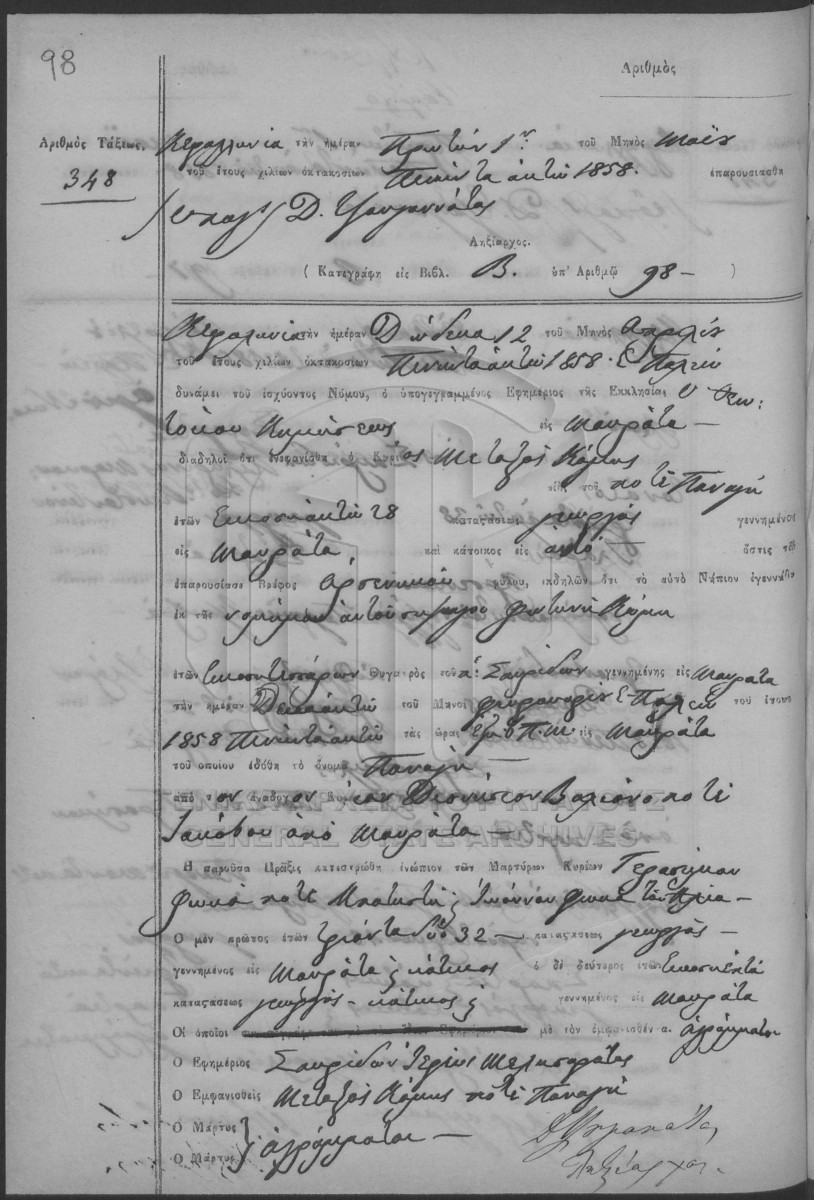 98
Ἀριθμὸς
Ἀριθμὸς Τάξεως,
348
Κεφαλληνία τὴν ἡμέραν Πρώτην 1ην τοῦ Μηνὸς Μαΐου
τοῦ ἔτους χιλίων ὀκτακοσίων Πενῆντα ὀκτὼ 1858. ἐπαρουσιάσθη
Δ.
Ληξίαρχος.
( Κατεγράφη εἰς Βιβλ. Β. ὑπ' Ἀριθμῷ 98 — )
Κεφαλληνία τὴν ἡμέραν Δώδεκα 12 τοῦ Μηνὸς Απριλίου
τοῦ ἔτους χιλίων ὀκτακοσίων Πενῆντα ὀκτὼ 1858. Ε. Παλαιὸν
δυνάμει τοῦ ἰσχύοντος Νόμου, ὁ ὑπογεγραμμένος Ἐφημέριος τῆς Ἐκκλησίας Θεο:
τόκου Κοιμήσεως εἰς Μαυράτα —
διαδηλοῖ ὅτι ἐνεφανίσθη ὁ Κύριος Μεταξὰς Κόμης
υἱὸς τοῦ ποτὲ Παναγῆ
ἐτῶν Εικοσιοκτὼ 28 καταςάσεως γεωργὸς γεννημένος
εἰς Μαυράτα καὶ κάτοικος εἰς αὐτό ὅστις τοῦ
ἐπαρουσίασε Βρέφος Αρσενικοῦ φύλου, ἐκδηλῶν ὅτι τὸ αὐτὸ Νήπιον ἐγεννήθη
ἐκ τῆς νομίμου αὐτοῦ συζύγου Φωτεινὴ Κόμη
ἐτῶν Εικοσιτεσσάρων Θυγατρὸς τοῦ Σπυρίδων γεννημένης εἰς Μαυράτα
τὴν ἡμέραν Δεκαοκτὼ τοῦ Μηνὸς Φευρουαρίου Ε. Παλαιὸν τοῦ ἔτους
1858 Πενῆντα ὀκτὼ τὰς ὥρας ἕξη 6 Π.Μ. εἰς Μαυράτα
τοῦ ὁποίου ἐδόθη τὸ ὄνομα Παναγῆ —
ἀπὸ τὸν ἀνάδοχον Κύριον Διονύσιον Βαλιάνο ποτὲ
Ιακώβου ἀπὸ Μαυράτα —
ΓΕΝΙΚΑ ΑΡΧΕΙΑ ΤΟΥ ΚΡΑΤΟΥΣ
GENERAL STATE ARCHIVES
Ἡ παροῦσα Πρᾶξις κατεστρώθη ἐνώπιον τῶν Μαρτύρων Κυρίων Γερασίμου
Φωκᾶ ποτὲ Ιωάννου Φωκᾶ τοῦ Ηλία —
Ὁ μὲν πρῶτος ἐτῶν τριάντα δύο 32 — καταςάσεως γεωργὸς —
γεννημένος εἰς Μαυράτα & κάτοικος ὁ δὲ δεύτερος ἐτῶν Εικοσιεπτά
καταςάσεως γεωργὸς — κάτοικος & γεννημένος εἰς Μαυράτα
Οἱ ὁποῖοι μὲ τὸν ἐμφανισθέντα. ἀγράμματοι
Ὁ Ἐφημέριος Σπυρίδων Ἱερεὺς Μελισσαράτος
Ὁ Ἐμφανισθεὶς Μεταξὰς Κόμης ποτὲ Παναγῆ
Ὁ Μάρτυς
Ὁ Μάρτυς } ἀγράμματοι —
Ληξίαρχος